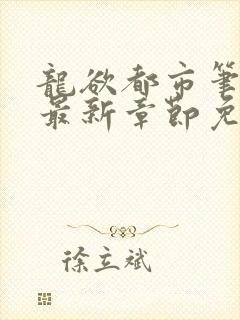 龍欲都市筆
最新章節免
徐立斌